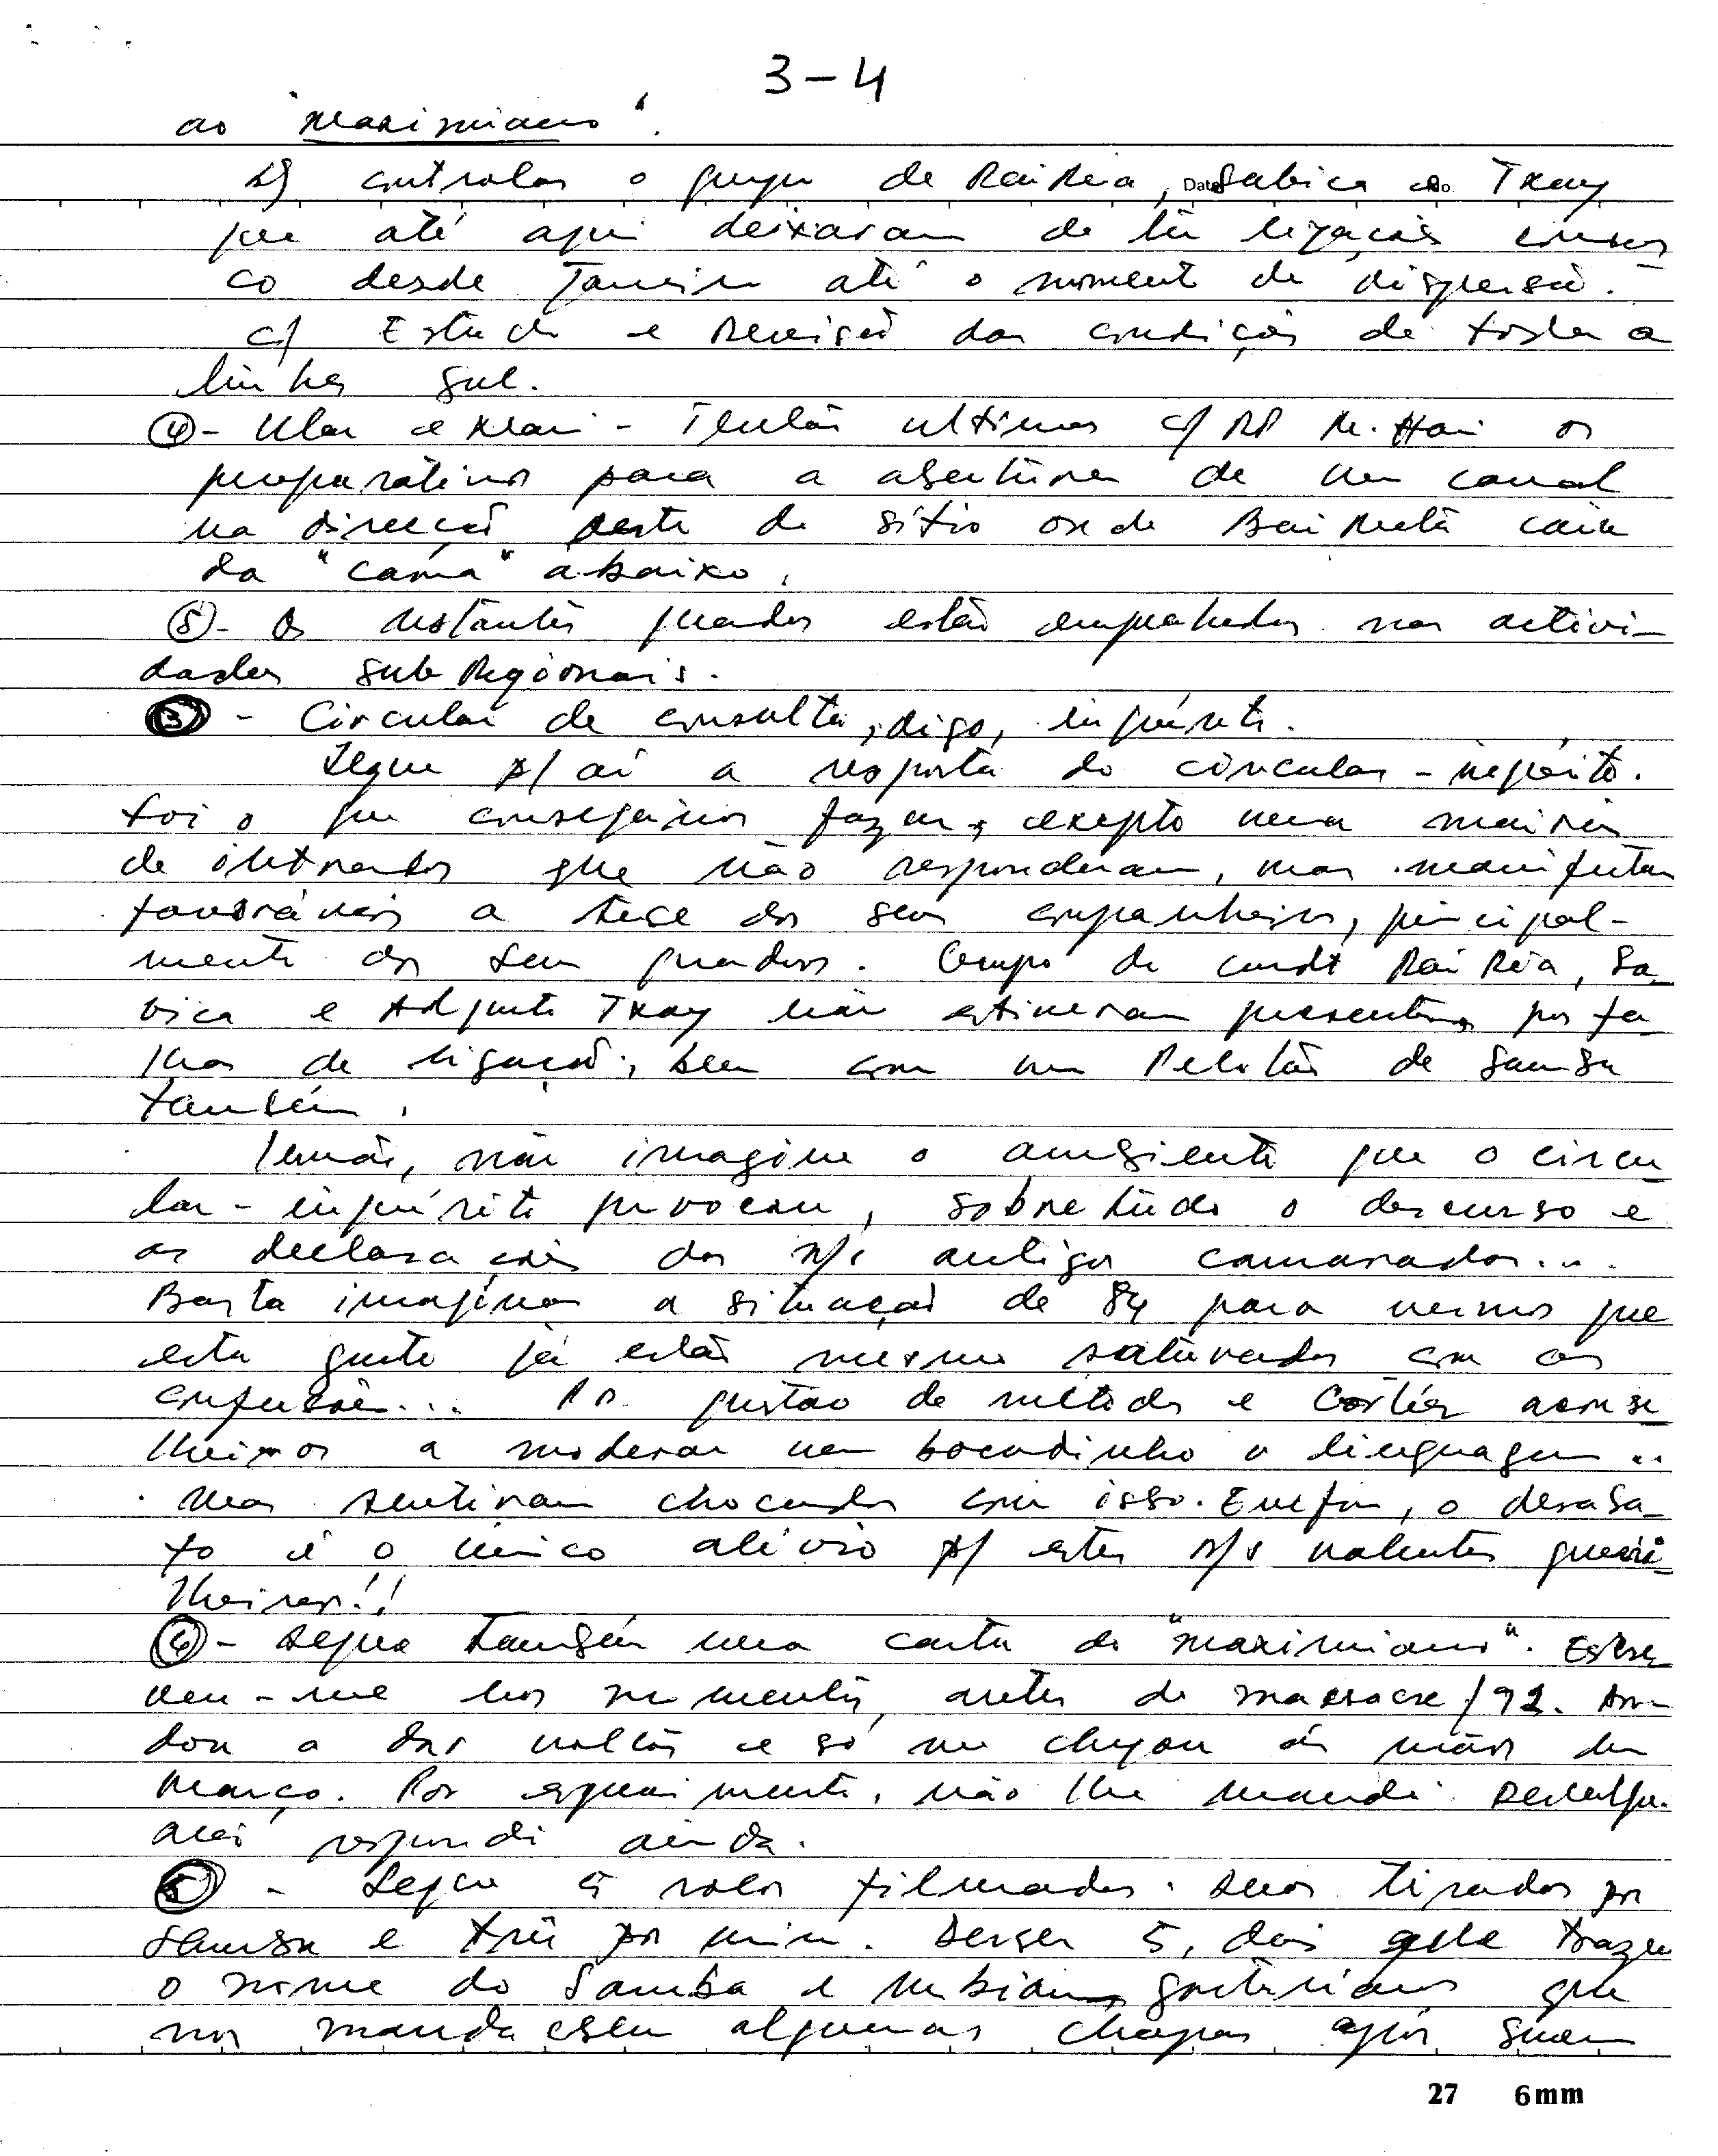 3-4
ao "Maximiano".
b) controlar o grupo de Rai Reia, Date Sabica e No. Txay
que até aqui deixaram de ter ligações connos
co desde Janeiro até o momento de dispersão.
c) Estudo e Revisão das condições de toda a
linha sul.
④- Ular e Klari - Terão ultimar c/ RP M. Hari os
preparativos para a abertura de um canal
na direcção deste do sítio onde Bai Metà caiu
da "cama" abaixo.
⑤- Os restantes quadros estão empenhados nas activi-
dades sub Regionais.
③ - Circular de consulta, digo, inquérito.
Segue p/ aí a resposta do circular - inquérito.
Foi o que conseguimos fazer, excepto uma maioria
de iletrados que não responderam, mas manifestam
favoráveis a tese dos seus companheiros, principal-
mente dos seus quadros. Grupo do cmdt Rai Reia, Sa
bica e Adjunto Txay não estiveram presentes, por fa
lhas de ligação, bem com um Pelotão de Samba
também.
Irmão, não imagine o ambiente que o circu
lar - inquérito provocou, sobretudo o discurso e
as declarações dos n/s antigos camaradas...
Basta imaginar a situação de 84 para vermos que
esta gente já estão mesmo saturados com as
confusões... P.P. questão de método e cortêz aconse
lheimos a moderar um bocadinho a linguagem ..
mas sentiram chocados com isso. Enfim, o desaba
fo é o único alívio p/ estes n/s valentes guerri-
lheiros!!
④- Segue também uma carta do "maximiano". Escre
veu-me nos momentos, antes do massacre/92. An-
dou a dar voltas e só me chegou ás mãos em
Março. Por esquecimento, não lhe mandei. Desculpe.
Nem respondi ainda.
⑤ - Segue 5 rolos filmados. Dois tirados por
Samba e três por mim. Desses 5, dois que trazem
o nome do Samba e Ubiam, gostaríamos que
nos mandassem algumas chapas após suam
27 6mm